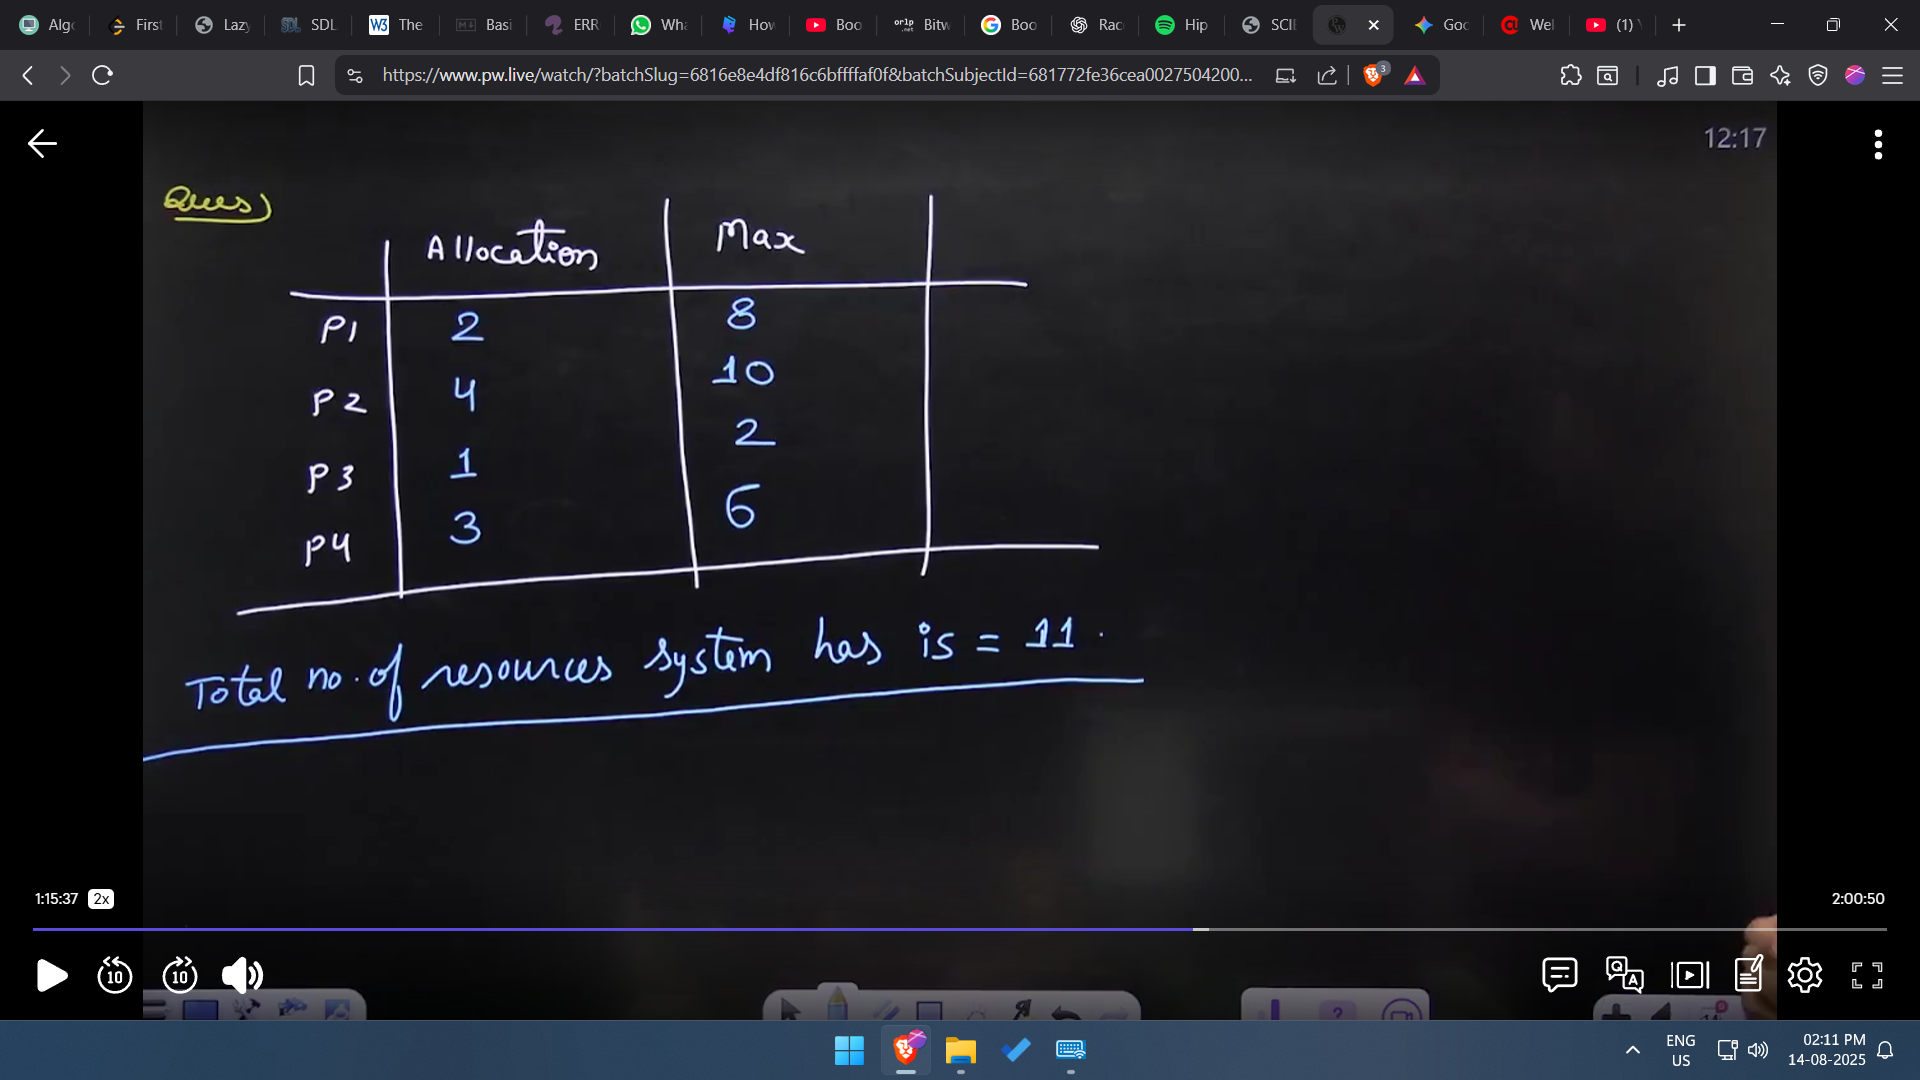 Algo
First
Lazy
SDL
The
Basi
ERR
Wha
How
Boo
Bitw
Boo
Rac
Hip
SCIE
Goo
Wel
(1)
https://www.pw.live/watch/?batchSlug=6816e8e4df816c6bffffaf0f&batchSubjectId=681772fe36cea0027504200...
3
12:17
Ques)
Allocation Max
P1 2 8
P2 4 10
P3 1 2
P4 3 6
Total no. of resources system has is = 11.
1:15:37 2x 2:00:50
10 10
ENG
US
02:11 PM
14-08-2025